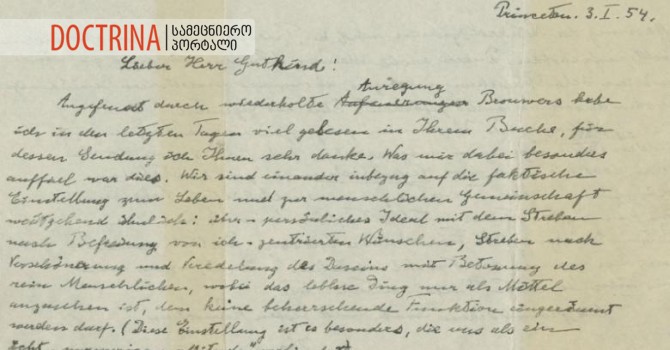 DOCTRINA
სამეცნიერო
პორტალი
Princeton. 3. I. 54.
Lieber Herr Gutkind!
Anregung
Angefeuert durch wiederholte Brouwers habe
ich in den letzten Tagen viel gelesen in Ihrem Buche, für
dessen Sendung ich Ihnen sehr danke. Was mir dabei besonders
auffiel war dies. Wir sind einander inbezug auf die faktische
Einstellung zum Leben und zur menschlichen Gemeinschaft
weitgehend ähnlich: über-persönliches Ideal mit dem Streben
nach Befreiung von ich-zentrierten Wünschen, Streben nach
Verschönerung und Veredelung des Daseins mit Betonung des
rein Menschlichen, wobei das leblose Ding nur als Mittel
anzusehen ist, dem keine beherrschende Funktion eingeräumt
werden darf. (Diese Einstellung ist es besonders, die uns als ein